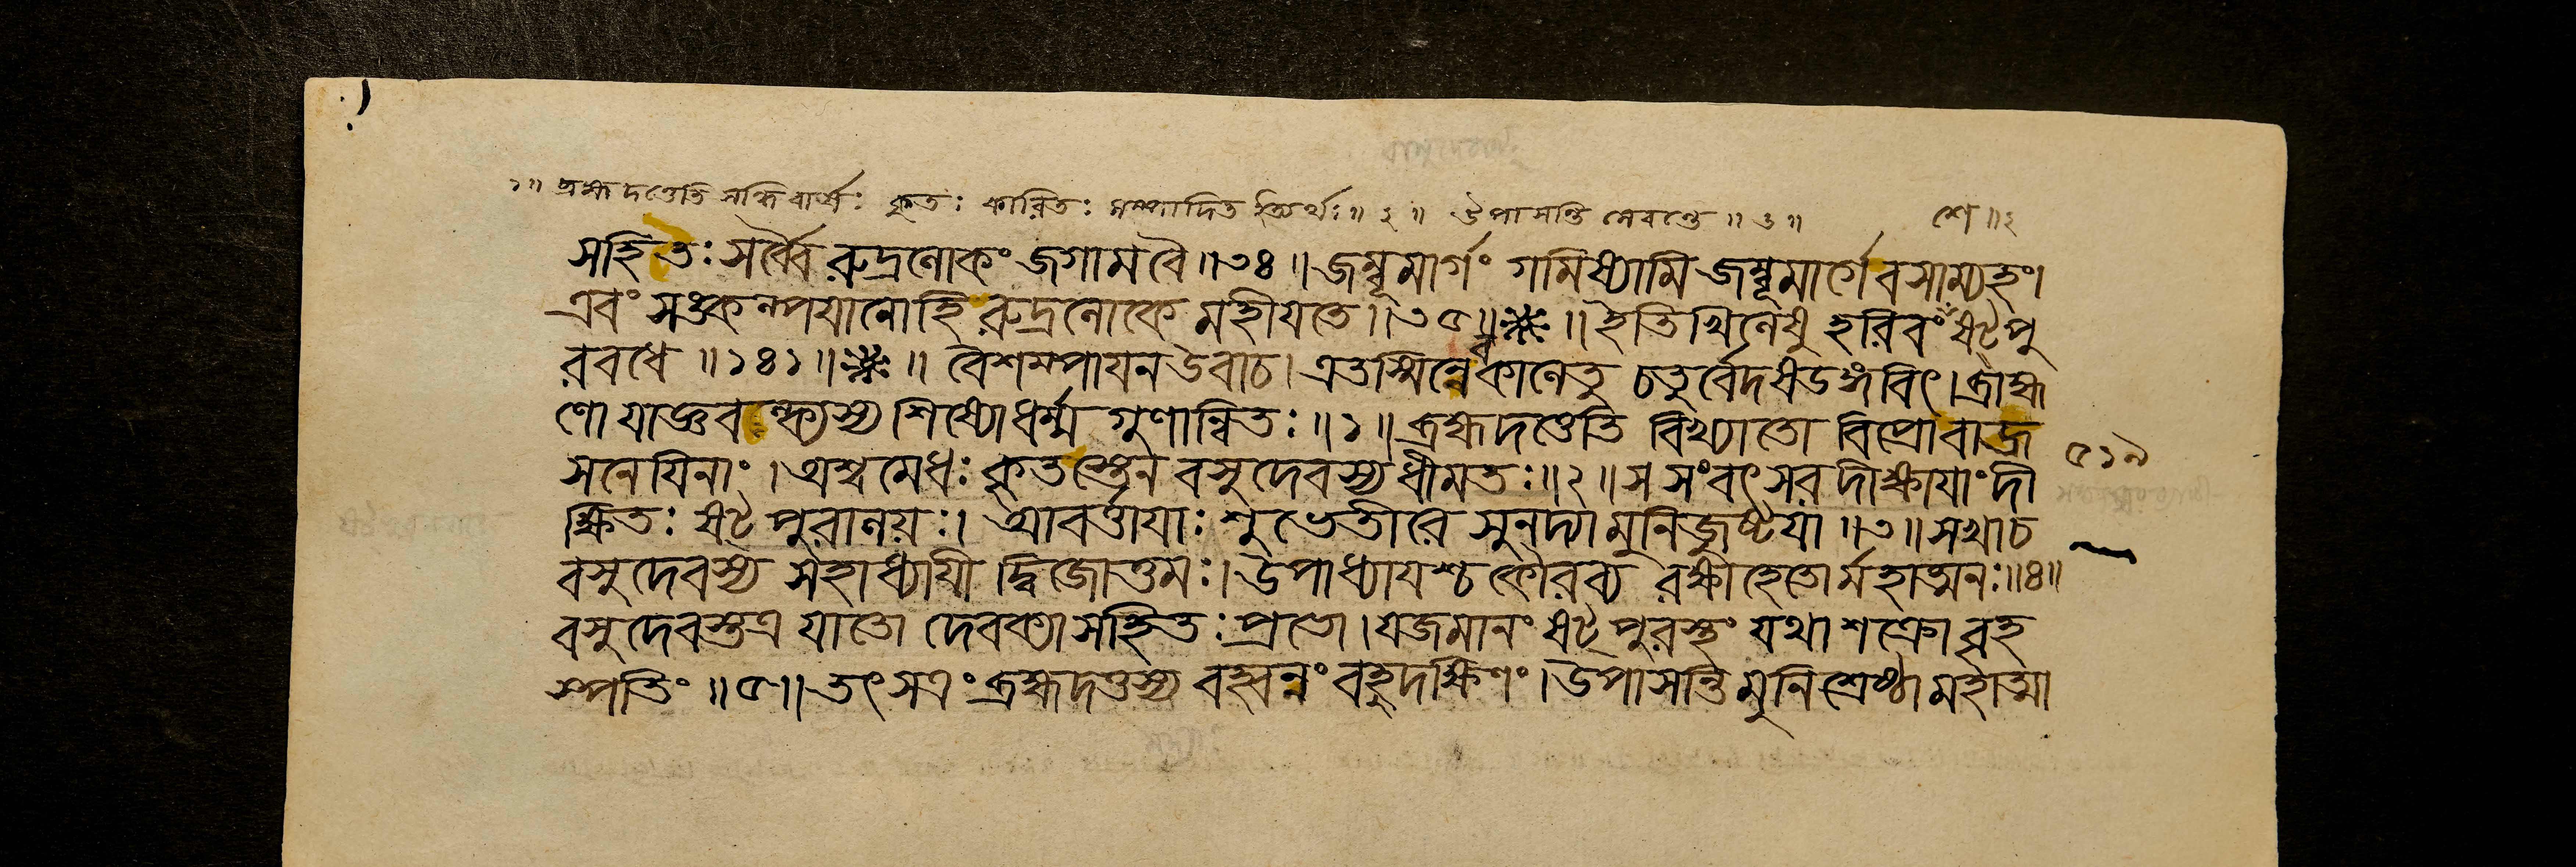 ১॥ ব্রহ্মদত্তেতি সন্ধিরার্ষঃ কৃতঃ কারিতঃ সম্পাদিত ইত্যর্থঃ॥ ২॥ উপাসন্তি সেবন্তে॥ ৩॥ শে॥ ২
সহিতঃ সর্ব্বৈ রুদ্রলোকং জগাম বৈ॥৩৪॥ জম্বূমার্গং গমিষ্যামি জম্বূমার্গে বসাম্যহং।
এবং সঙ্কল্পযানোহি রুদ্রলোকে মহীযতে॥৩৫॥ ॥ ইতি খিলেষু হরিবং ষট্পু
রবধে॥১৪১॥ ॥ বৈশম্পাযন উবাচ। এতস্মিন্নেব কালেতু চতুর্বেদষডঙ্গবিৎ। ব্রাহ্ম
ণো যাজ্ঞবল্ক্যস্য শিষ্যো ধর্ম্ম গুণান্বিতঃ॥১॥ ব্রহ্মদত্তেতি বিখ্যাতো বিপ্রো বাজ
সনেযিনাং। অশ্বমেধঃ কৃতস্তেন বসুদেবস্য ধীমতঃ॥২॥ স সংবৎসরদীক্ষাযাং দী
৫১৯
ক্ষিতঃ ষট্পুরালয়ঃ। আবর্ত্তাযাঃ শুভে তীরে সুনদ্যা মুনিজুষ্টযা॥৩॥ সখাচ
বসুদেবস্য সহাধ্যাযী দ্বিজোত্তমঃ। উপাধ্যাযশ্চ কৌরব্য রক্ষীহেতোর্মহাত্মনঃ॥৪॥
বসুদেবস্তত্র যাতো দেবক্যা সহিতঃ প্রভো। যজমানং ষট্পুরস্থং যথা শক্রো বৃহ
স্পতিং॥৫॥ তৎ সত্রং ব্রহ্মদত্তস্য বহ্বন্নং বহুদক্ষিণং। উপাসন্তি মুনিশ্রেষ্ঠা মহাত্মা